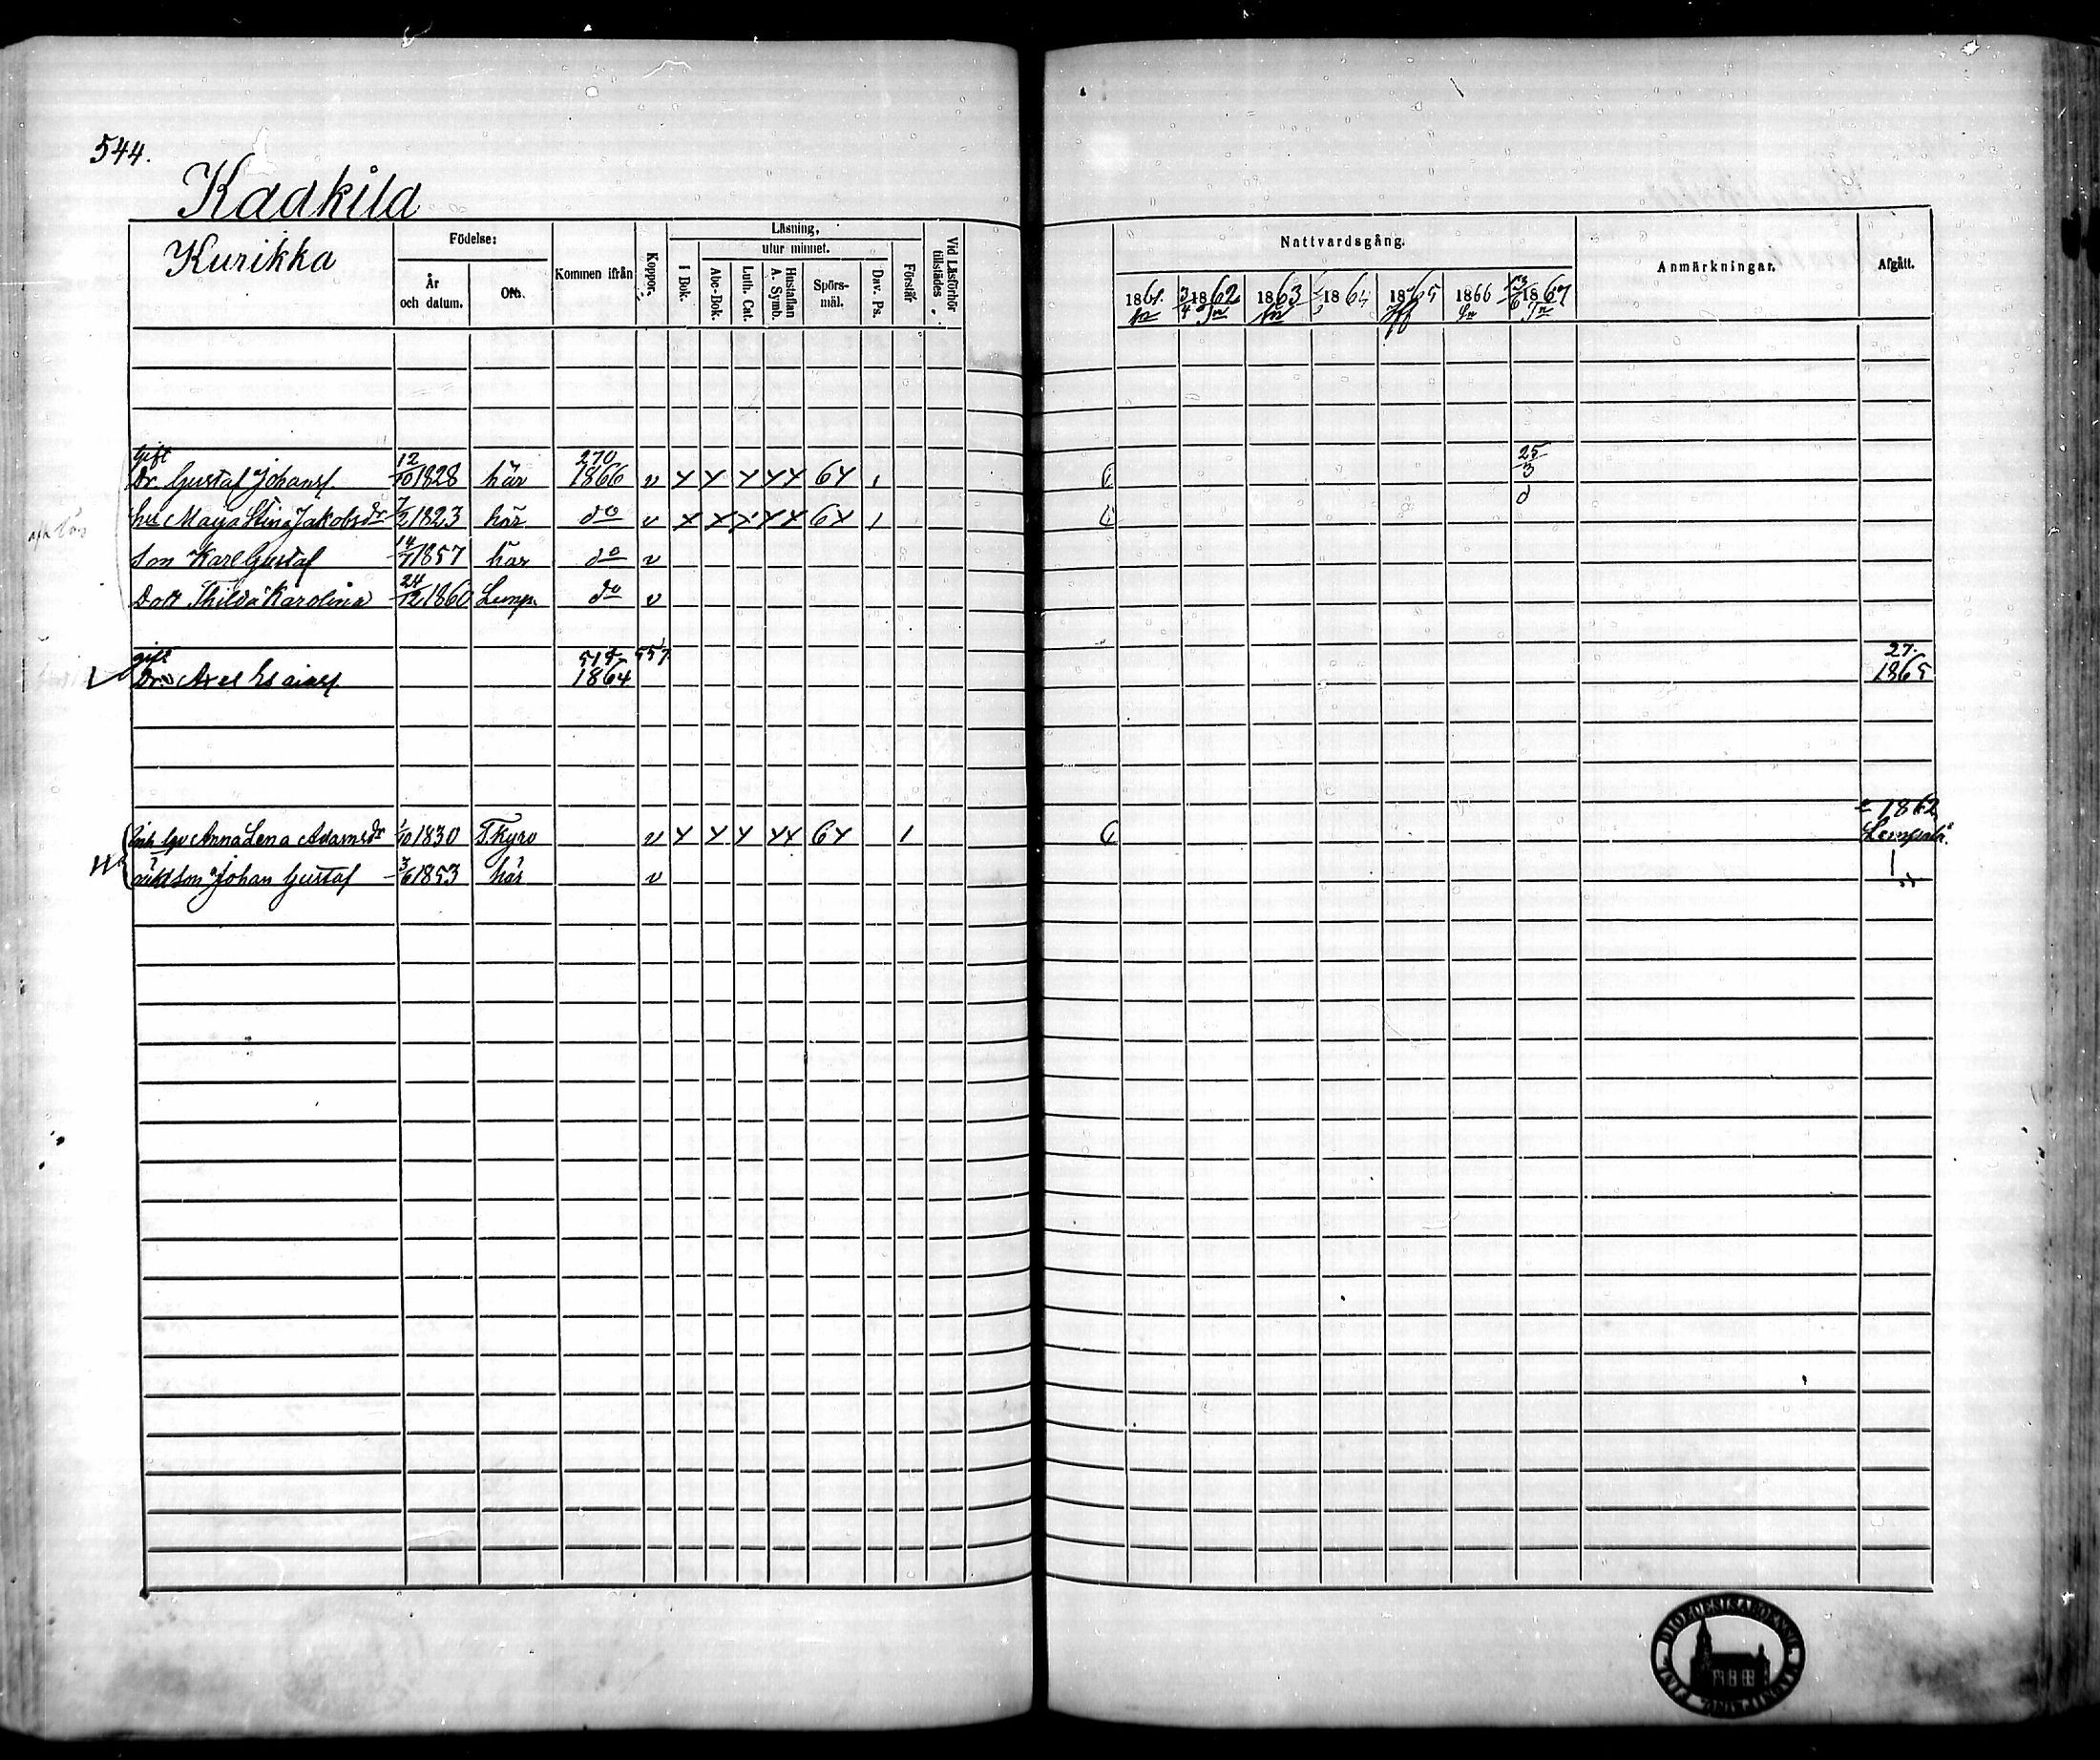 544.
Kaakila
Kurikka
Födelse:
År och datum.
Ort.
Kommen ifrån
Koppor.
Läsning,
utur minnet.
I Bok.
Abc-Bok.
Luth. Cat.
Hustaflan A. Symb.
Spörsmål.
Dav. Ps.
Förstår
Vid Läsförhör tillstädes
Nattvardsgång.
1861. 3/4 1862 1863 1864 1865 1866 1867
Anmärkningar.
Afgått.
gift 12 270 25
Dr. Gustaf Johans. /10 1828 här 1866 v x x x x x 6x 1 3
hu Maja Stina Jakobsdr 7/2 1823 här do v x x x x x 6x 1 d
Son Karl Gustaf 14/7 1857 här do v
Dott Thilda Karolina 24/12 1860 Lemp. do v
gift 515 557 27.
Dr. Axel Esaiass. 1864 1865
1862
inh Anna Lena Adamsdr 1/10 1830 T.kyro v x x x x x 6x 1 Lempälä.
oäkt Son Johan Gustaf 3/6 1853 här v
DIOECESIS ABOENSIS